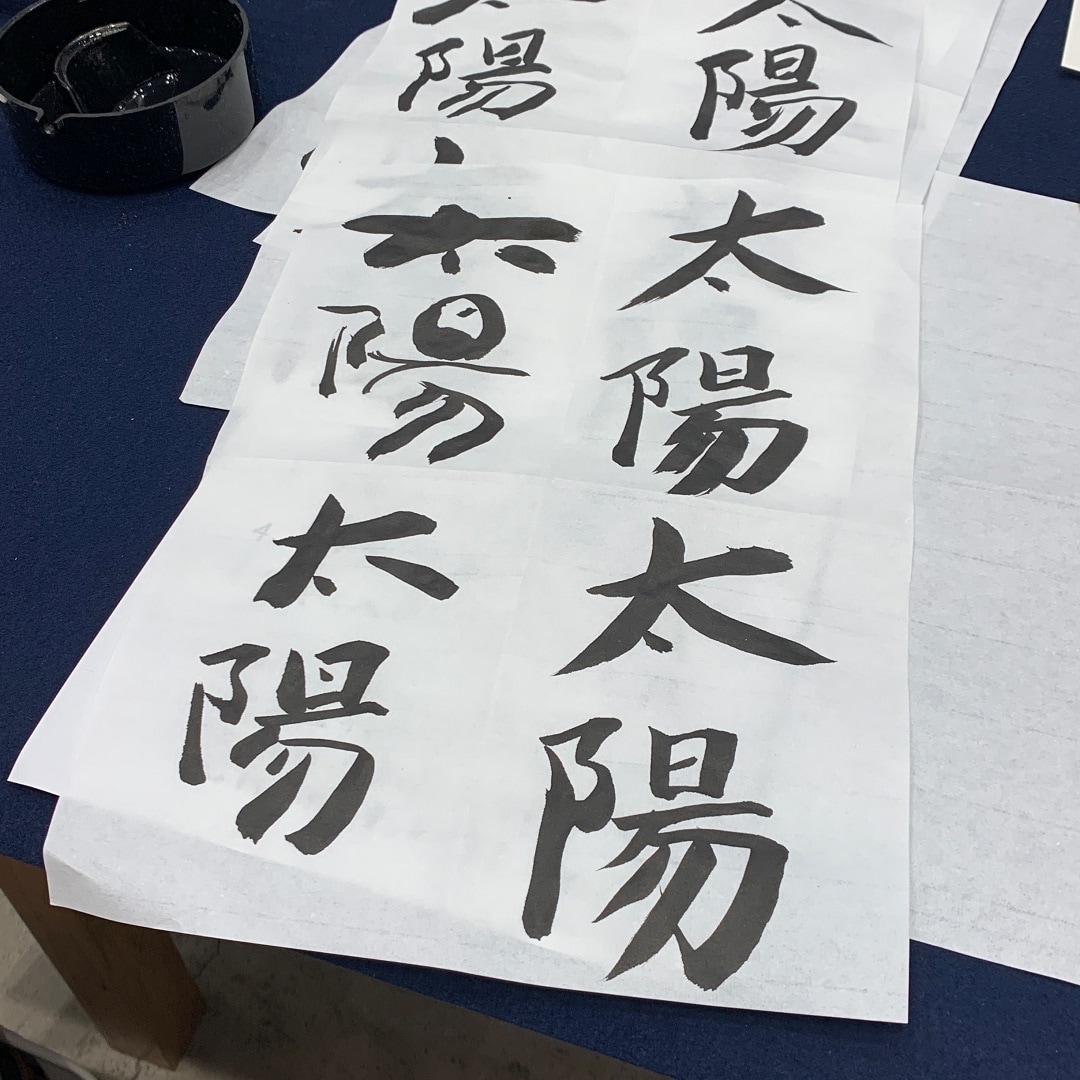 太陽
太陽
太陽
太陽
太陽
太陽